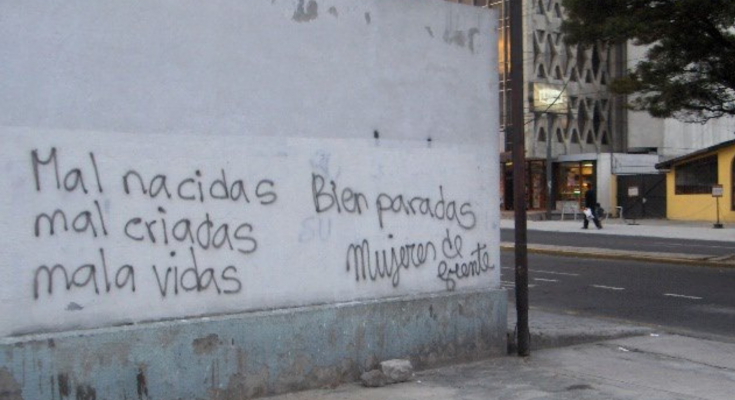 Mal nacidas
mal criadas
mala vidas
Bien paradas
Mujeres de
frente